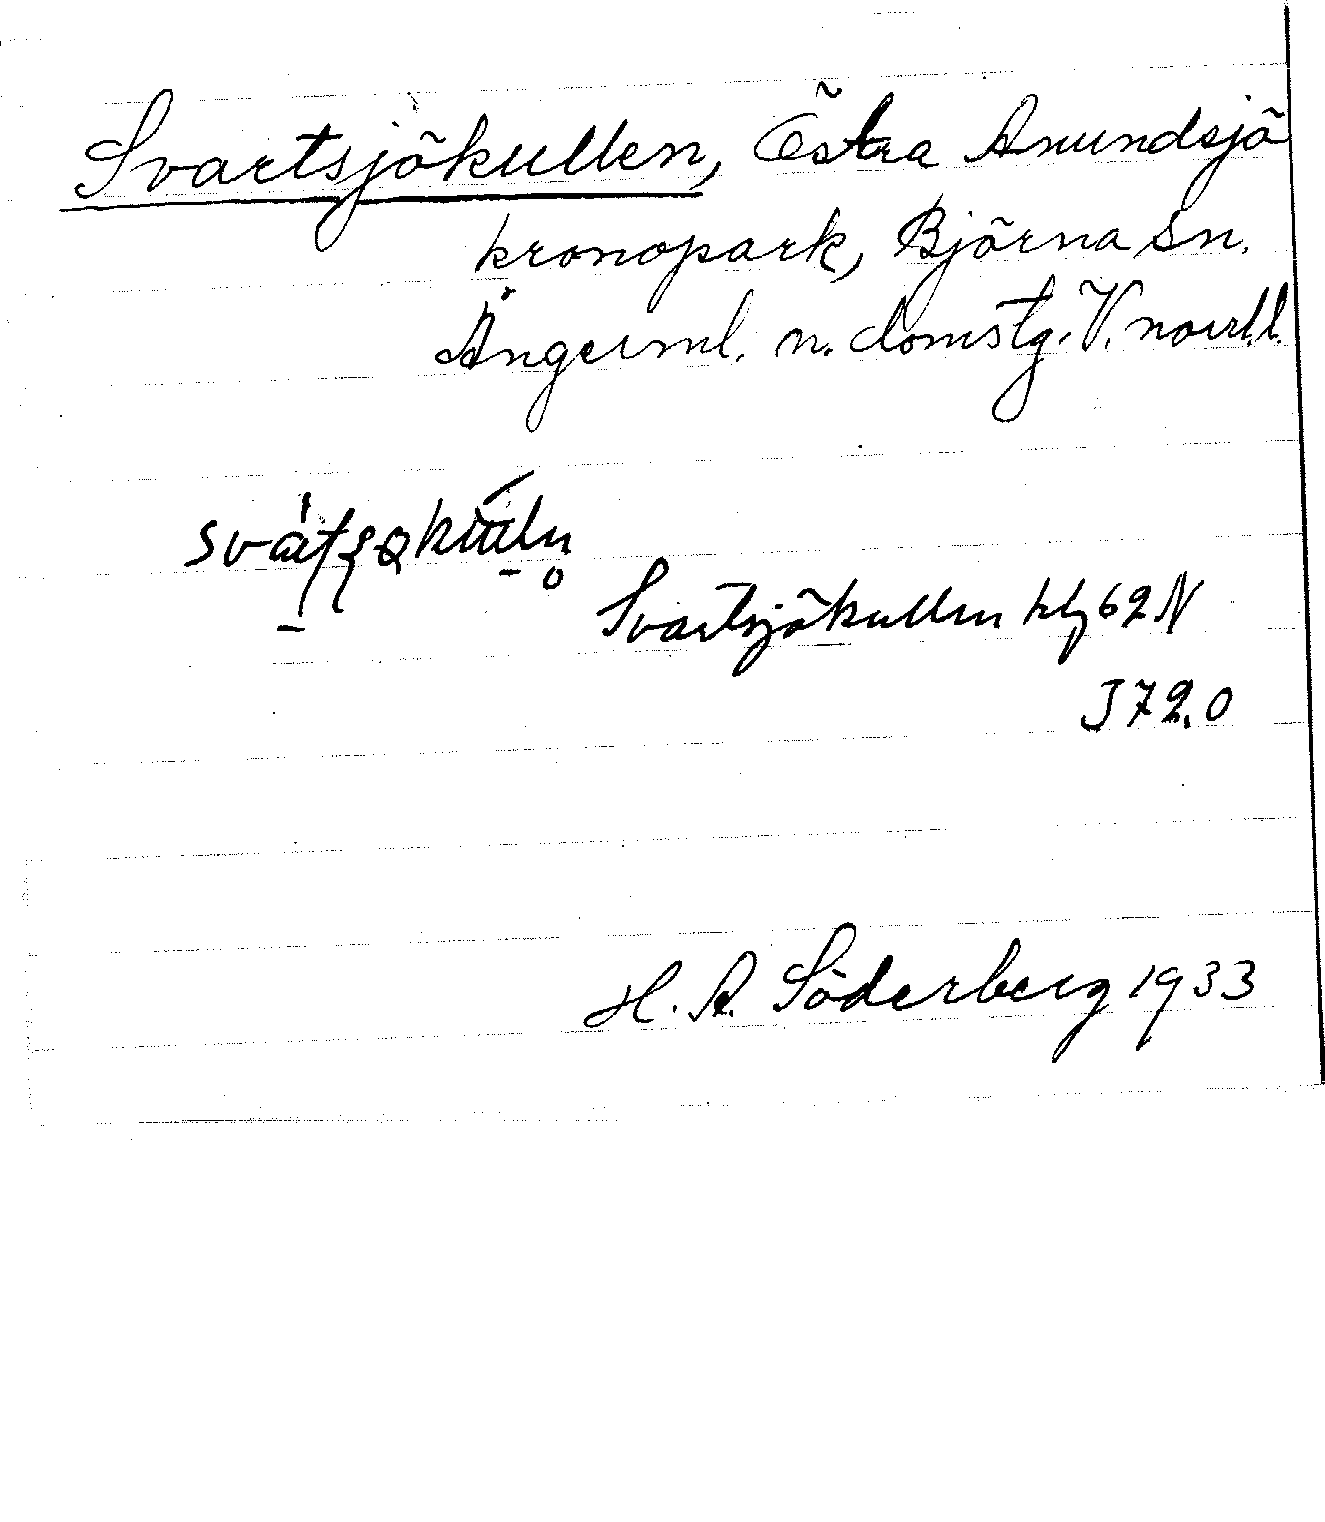 Svartsjökullen, Östra Anundsjö
kronopark, Björna sn.
Ångerml. n. domstg. V. norrl.l.
Svartsjökullen kbl 62 N
J 72.0
H. A. Söderberg 1933